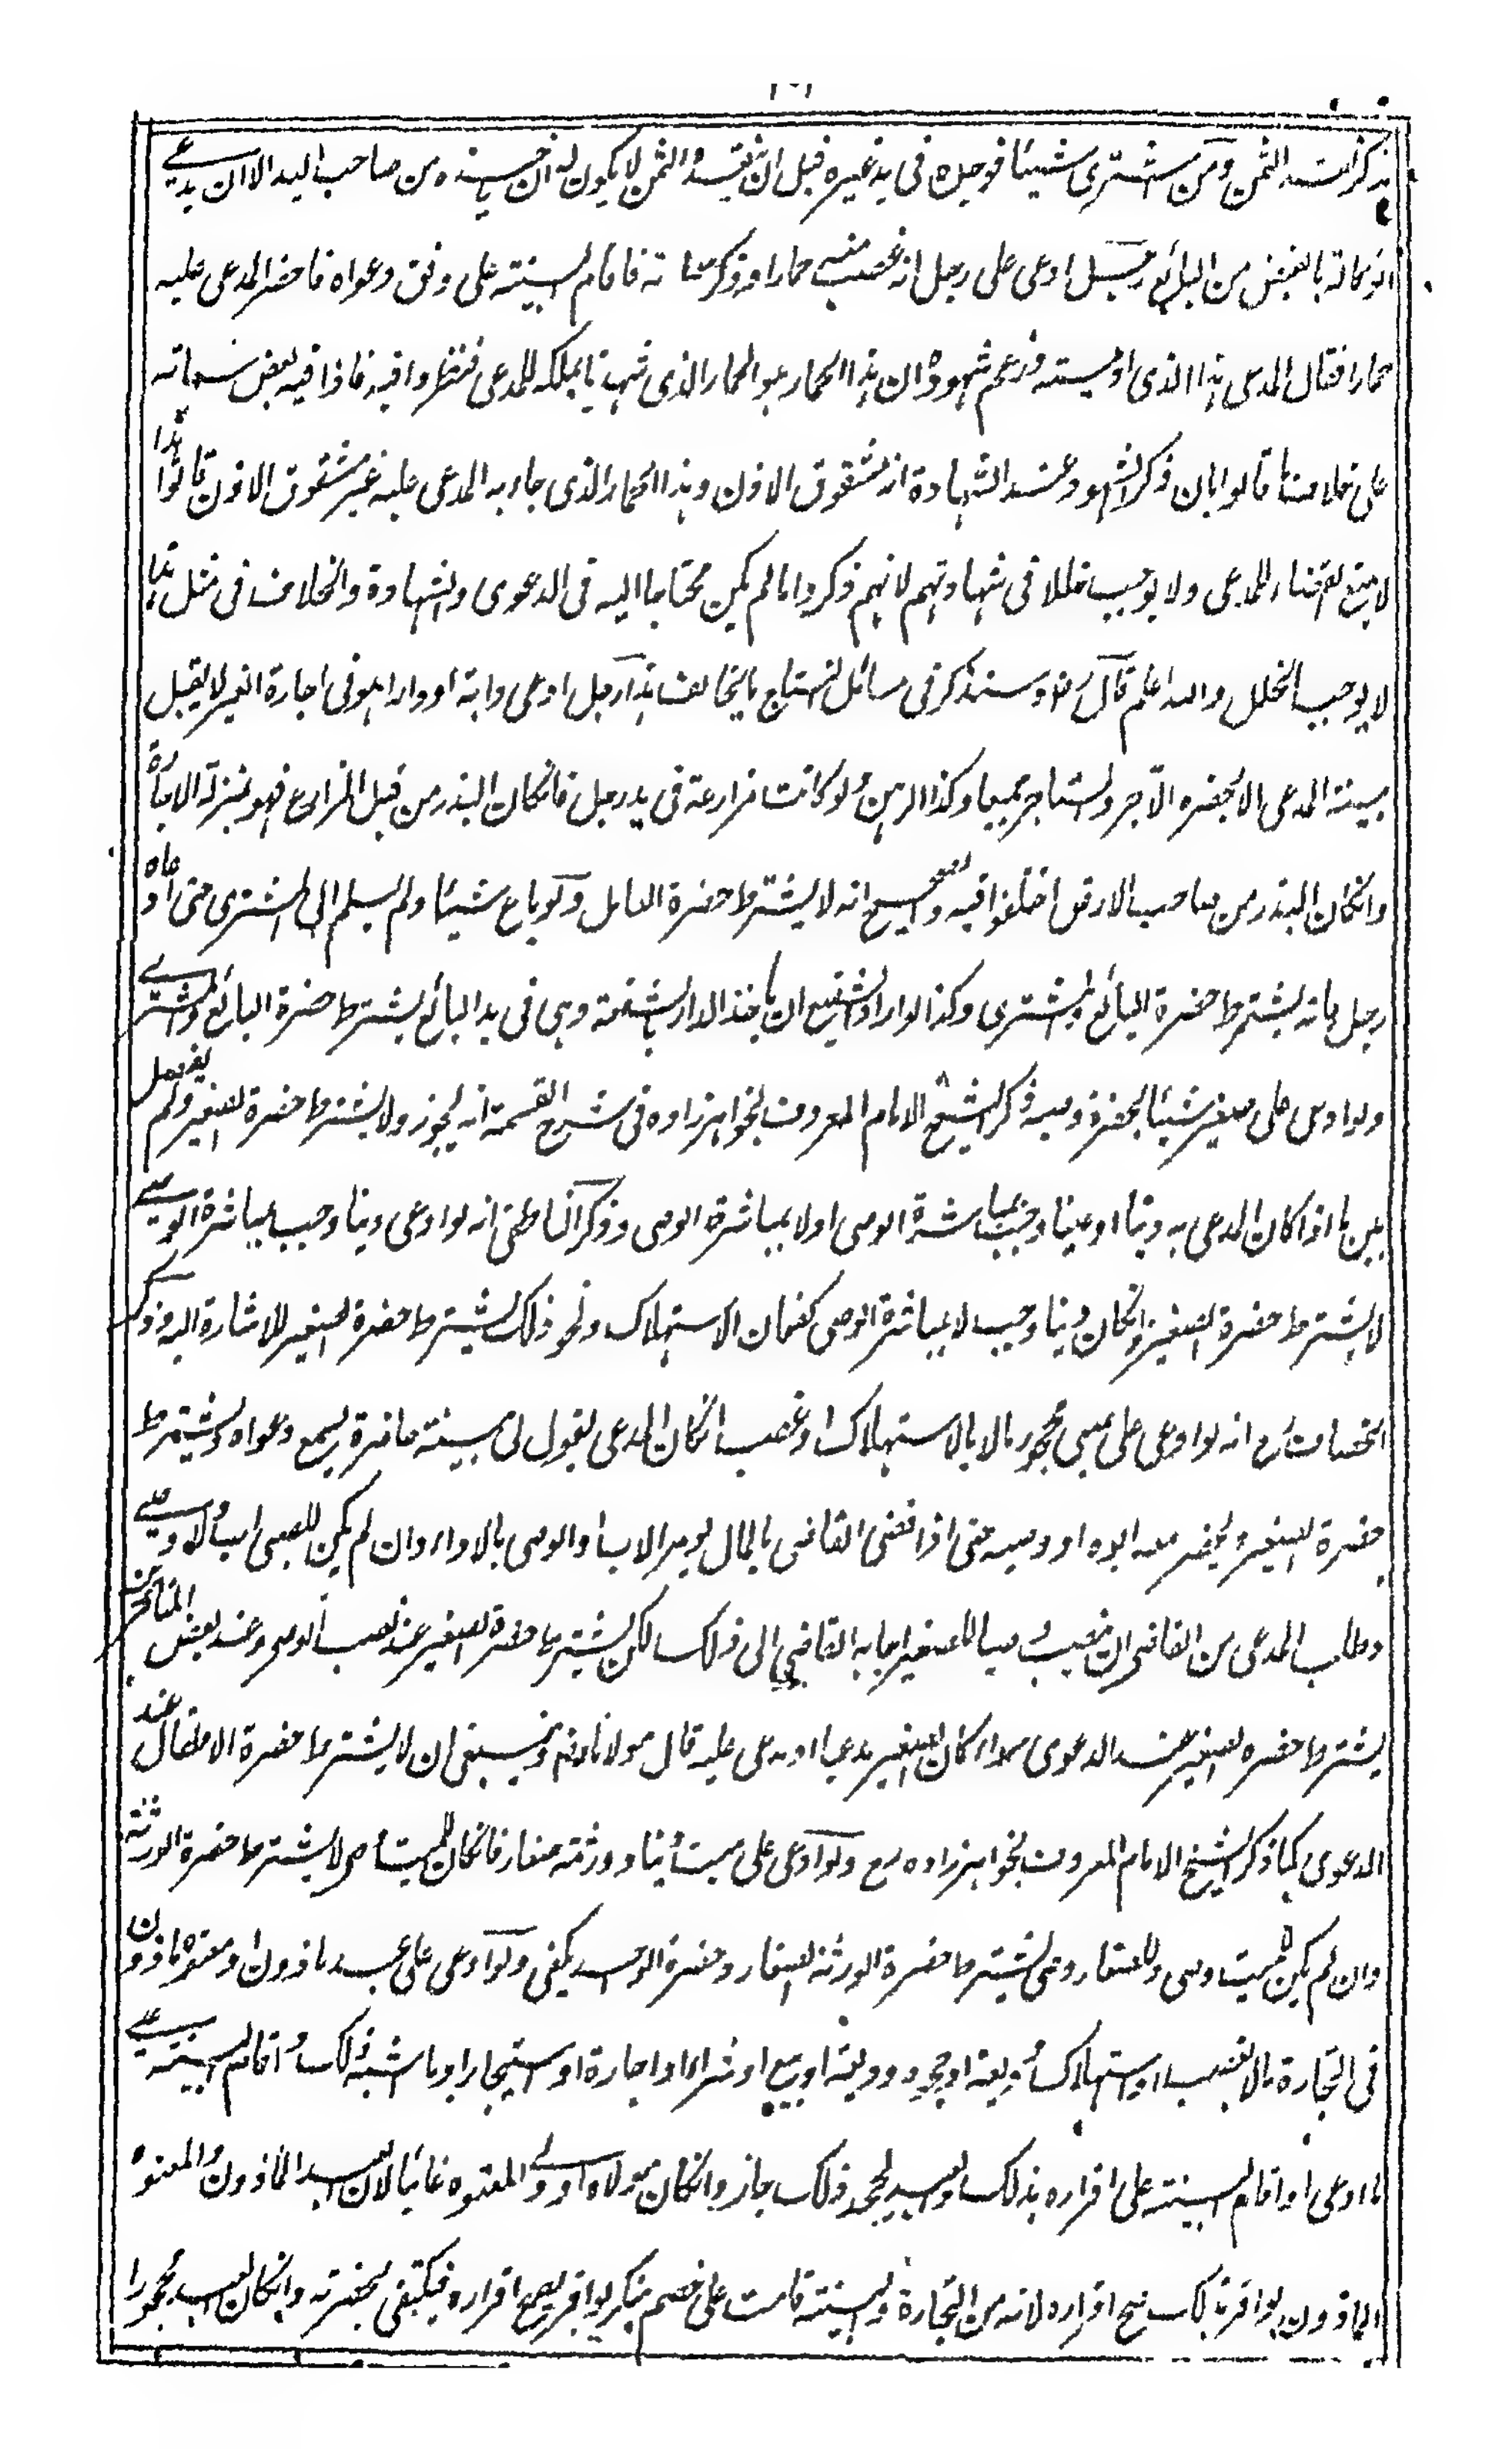 يذكر انتقد الثمن ومن اشترى شيئا فوجده في يد غيره قبل ان ينقد الثمن لا يكون له ان ياخذه من صاحب اليد الا ان يدعي
الوكالة بالقبض من البائع رجل ادعى على رجل انه غصب منه حمارا وذكر شياته فاقام البينة على وفق دعواه فاحضر المدعى عليه
حمارا فقال المدعي هذا الذي ادعيته وزعم شهوده ان هذا الحمار هو الحمار الذي شهدنا بملكه للمدعي فنظروا فيه فاذا فيه بعض سماته
على خلاف ما قالوا بان ذكر الشهود عند الشهادة انه مشقوق الاذن وهذا الحمار الذي جاء به المدعى عليه غير مشقوق الاذن قالوا هذا
لا يمنع القضاء للمدعي ولا يوجب خللا في شهادتهم لانهم ذكروا ما لم يكن محتاجا اليه في الدعوى والشهادة والخلاف في مثل هذا
لا يوجب الخلل والله اعلم قال رض وسنذكر في مسائل النتاج ما يخالف هذا رجل ادعى دابة او دارا هو في اجارة الغير لا يقبل
بينة المدعي الا بحضرة الآجر والمستاجر جميعا وكذا الرهن ولو كانت مزارعة في يد رجل فانكان البذر من قبل المزارع فهو بمنزلة الاجارة
وانكان البذر من صاحب الارض اختلفوا فيه والصحيح انه لا يشترط حضرة العامل ولو باع شيئا ولم يسلم الى المشتري حتى ادعاه
رجل فانه يشترط حضرة البائع والمشتري وكذا لو اراد الشفيع ان ياخذ الدار بالشفعة وهي في يد البائع يشترط حضرة البائع والمشتري
ولو ادعى على صغير شيئا بحضرة وصيه ذكر الشيخ الامام المعروف بخواهرزاده في شرح القسمة انه يجوز ولا يشترط حضرة الصغير ولم يفصل
بين ما اذا كان المدعى به دينا او عينا وجب بمباشرة الوصي اولا بمباشرة الوصي وذكر الناطفي انه لو ادعى دينا وجب بمباشرة الوصي
لا يشترط حضرة الصغير وانكان دينا وجب لا بمباشرة الوصي كضمان الاستهلاك ونحو ذلك يشترط حضرة الصغير للاشارة اليه وذكر
الخصاف رح انه لو ادعى على صبي محجور مالا بالاستهلاك او غصب انكان المدعي يقول لي بينة حاضرة يسمع دعواه ويشترط
حضرة الصغير ويحضر معه ابوه او وصيه حتى اذا قضى القاضي بالمال يومر الاب او الوصي بالاداء وان لم يكن للصبي اب ولا وصي
وطلب المدعي من القاضي ان ينصب وصيا للصغير اجابه القاضي الى ذلك لكن يشترط حضرة الصغير عند نصب الوصي وعند بعض المتاخرين
يشترط حضرة الصغير عند الدعوى سواء كان الصغير مدعيا او مدعى عليه قال مولانا رض وينبغي ان لا يشترط حضرة الاطفال عند
الدعوى كما ذكر الشيخ الامام المعروف بخواهرزاده رح ولو ادعى على ميت دينا وورثته صغار فانكان للميت وصي لا يشترط حضرة الورثة
وان لم يكن للميت وصي وللصغار وصي يشترط حضرة الورثة الصغار وحضرة الواحد يكفي ولو ادعى على عبد ماذون او معتوه ماذون
في التجارة مالا بغصب او استهلاك وديعة او جحود وديعة او بيع او شراء او اجارة او استيجار او ما اشبه ذلك واقام البينة على
ما ادعى او اقام البينة على اقراره بذلك والعبد يجحد ذلك جاز وانكان مولاه او ولي المعتوه غائبا لان العبد الماذون والمعتوه
الماذون لو اقر بذلك صح اقراره لانه من التجارة والبينة قامت على خصم منكر لو اقر يصح اقراره فيكتفى بحضرته وانكان العبد محجورا